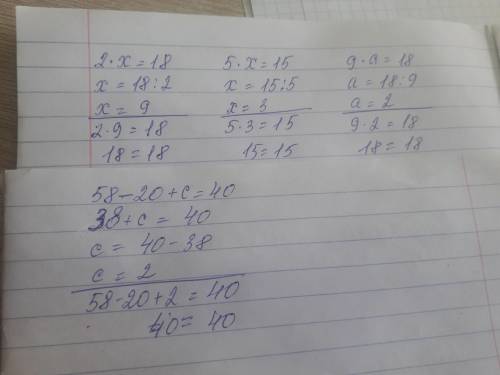 2·x=18
x=18:2
x=9
2·9=18
18=18
5·x=15
x=15:5
x=3
5·3=15
15=15
9·a=18
a=18:9
a=2
9·2=18
18=18
58-20+c=40
38+c=40
c=40-38
c=2
58-20+2=40
40=40